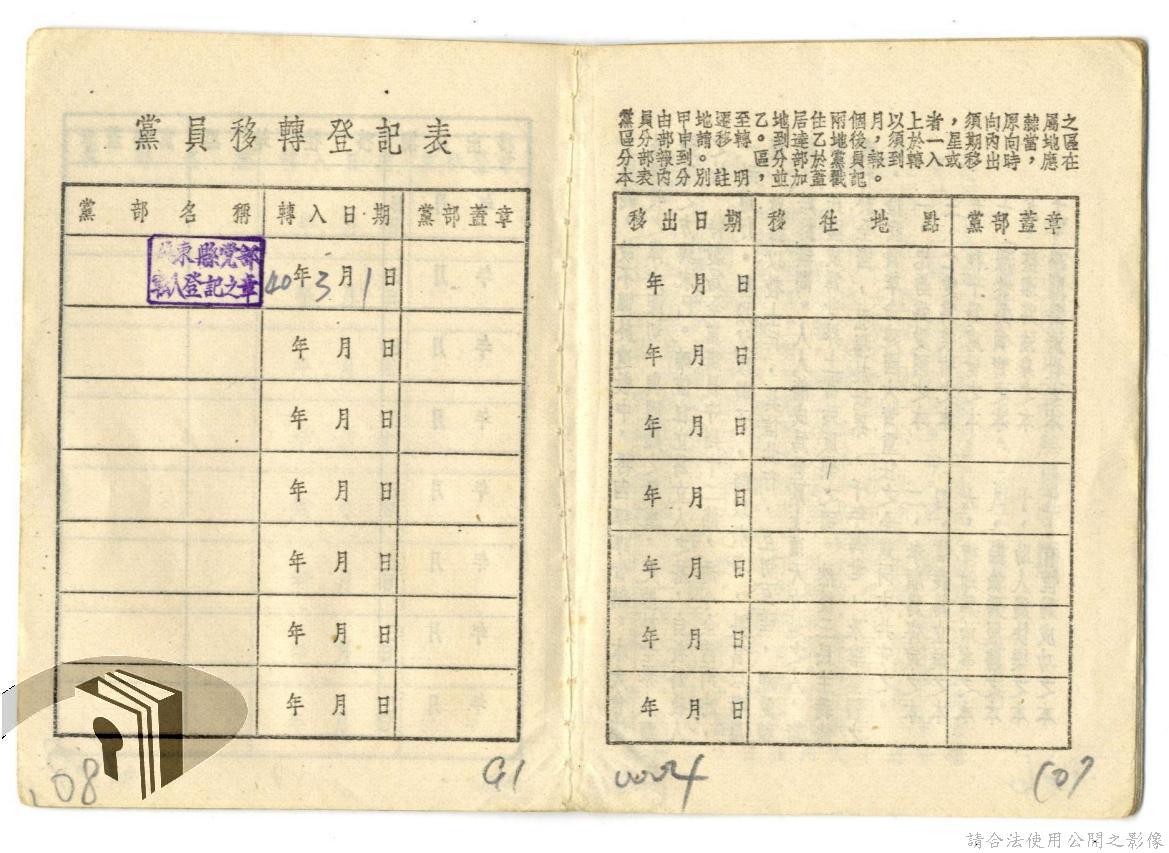 黨員移轉登記表
黨部名稱 轉入日期 黨部蓋章
屏東縣党部
轉入登記之章
40年3月1日
年 月 日
年 月 日
年 月 日
年 月 日
年 月 日
年 月 日
08
91
黨員由甲地遷至乙地居住兩個月以上者,須向原隸屬之
區分部申請移轉。到達乙地後,須於一星期內向當地區
分部報到。區分部於黨員報到轉入或移出時,應在
本表內分別註明,並加蓋戳記。
移出日期 移往地點 黨部蓋章
年 月 日
年 月 日
年 月 日
年 月 日
年 月 日
年 月 日
年 月 日
0004
107
請合法使用公開之影像